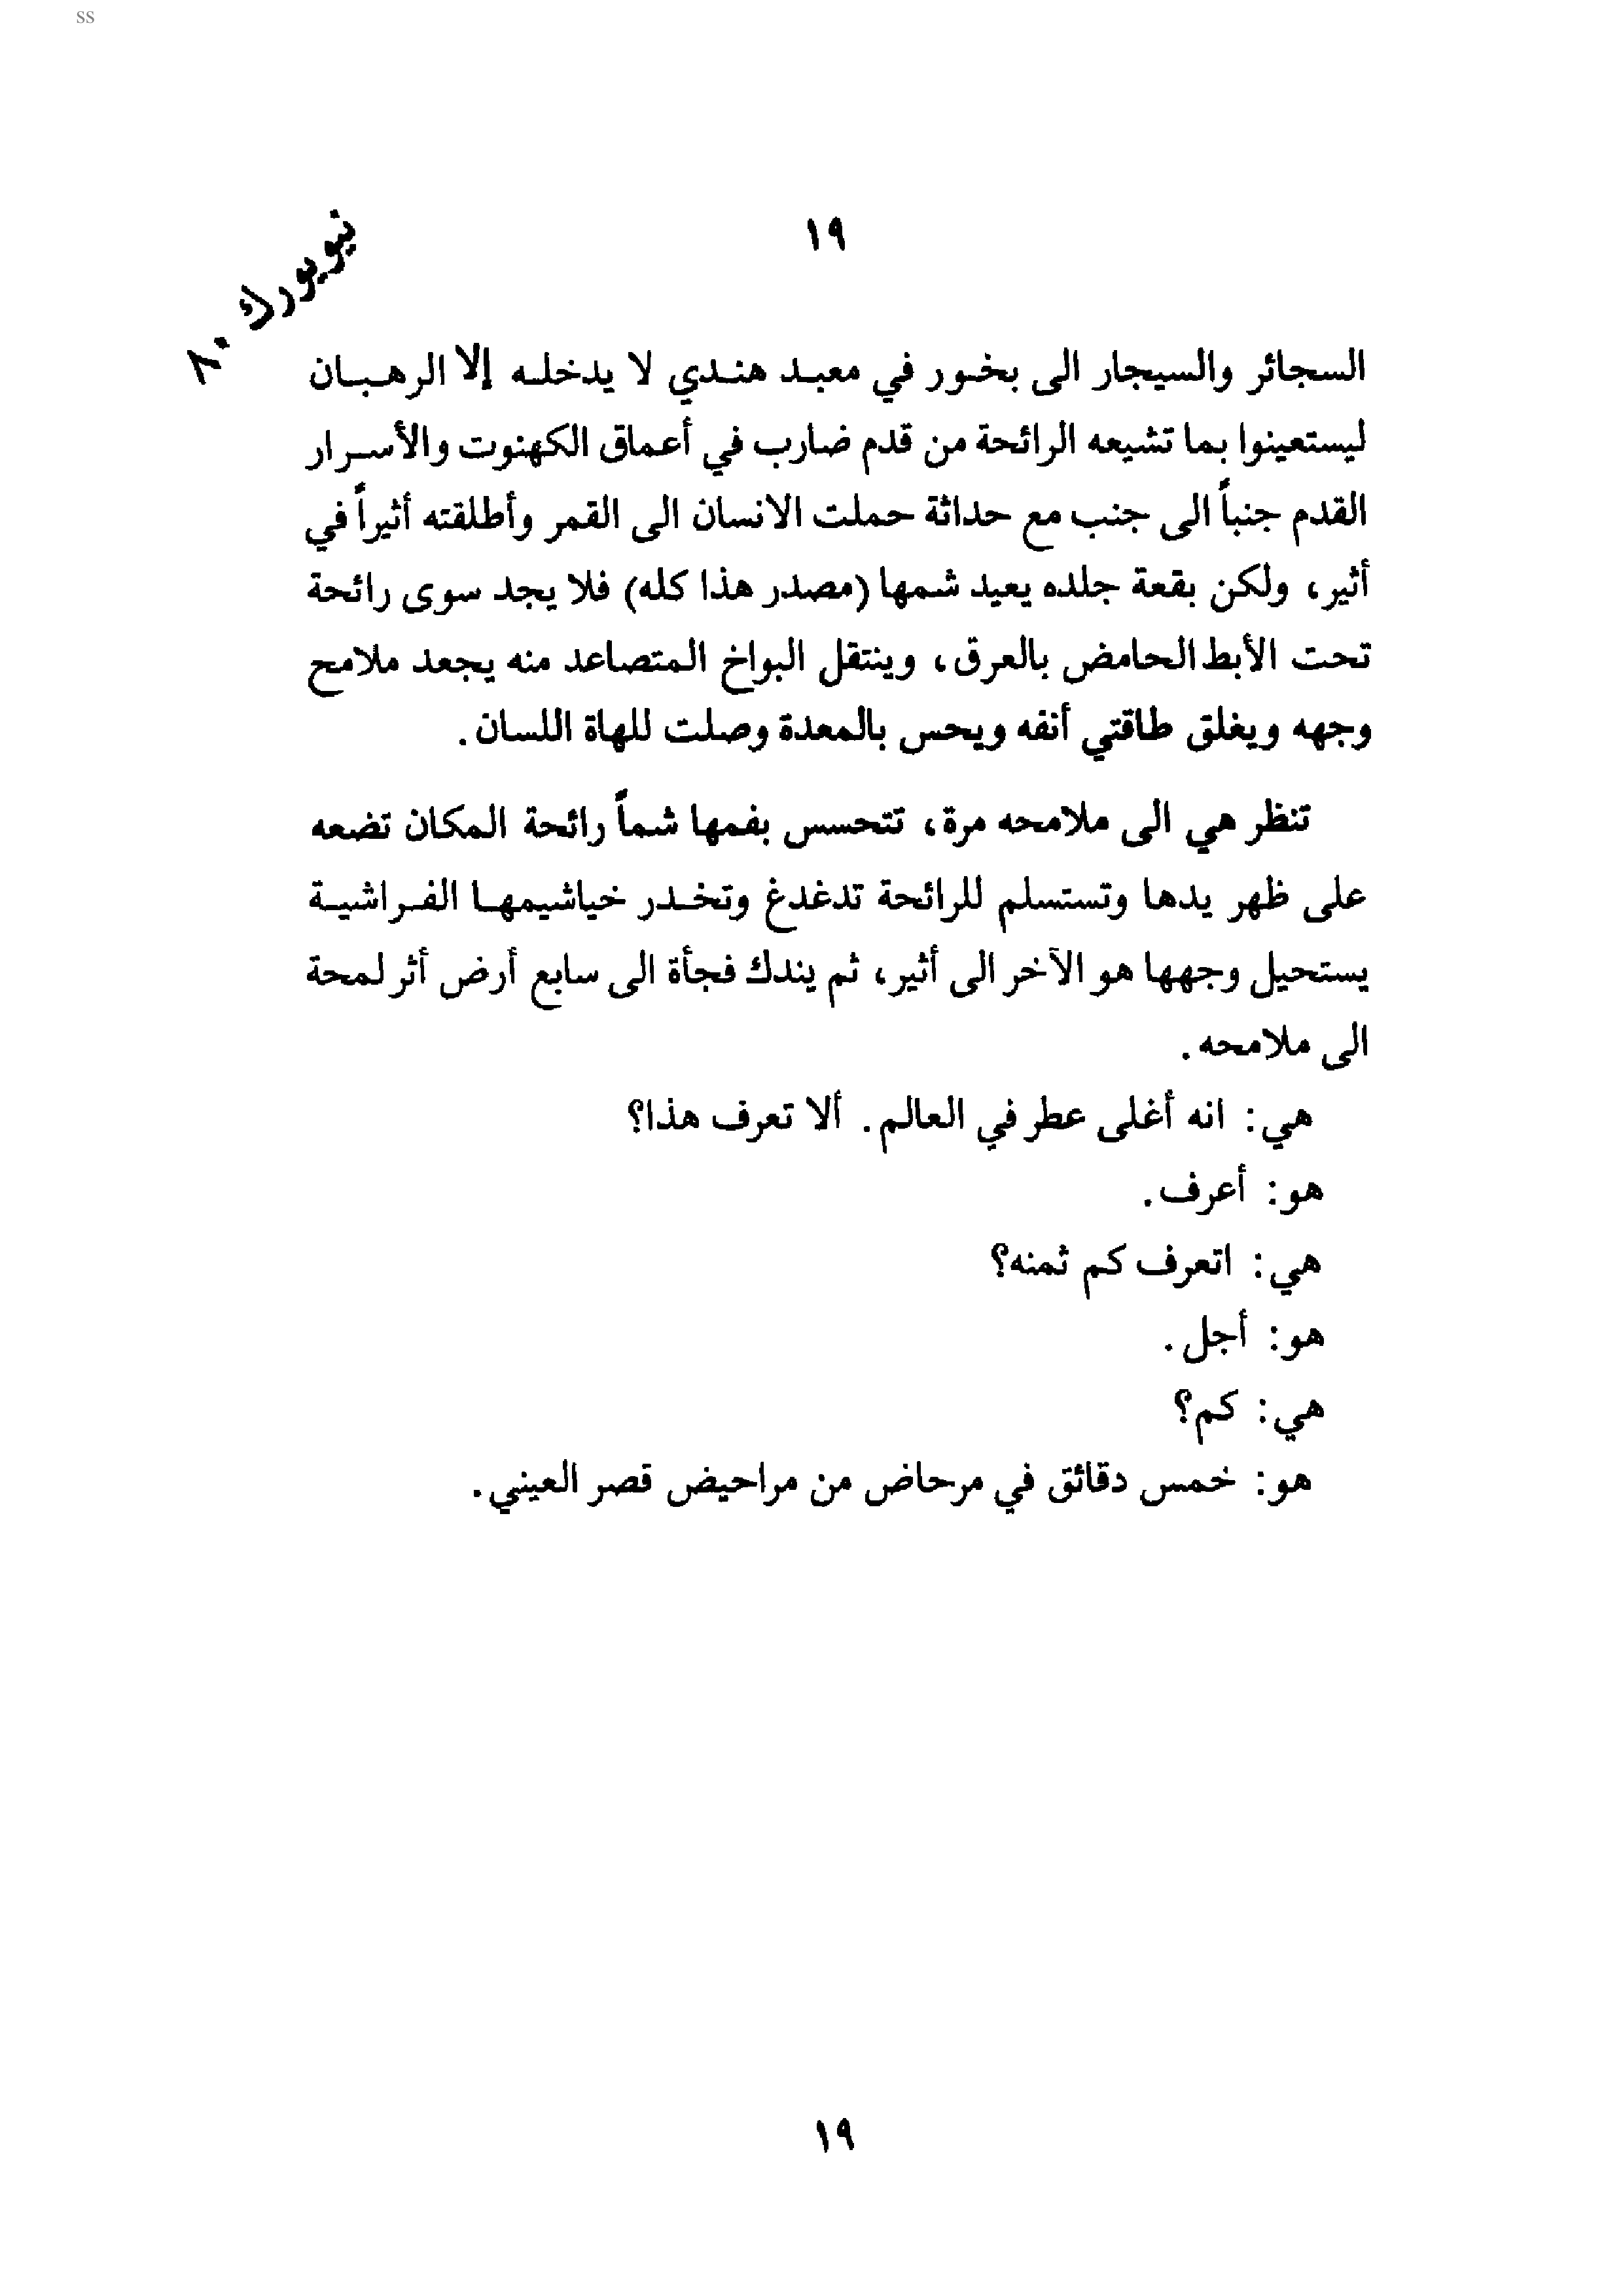 ss
١٩
نيويورك ٨٠
السجائر والسيجار الى بخور في معبد هندي لا يدخله إلا الرهبان
ليستعينوا بما تشيعه الرائحة من قدم ضارب في أعماق الكهنوت والأسرار
القدم جنباً الى جنب مع حداثة حملت الانسان الى القمر وأطلقته أثيراً في
أثير، ولكن بقعة جلده يعيد شمها (مصدر هذا كله) فلا يجد سوى رائحة
تحت الأبط الحامض بالعرق، وينتقل البواخ المتصاعد منه يجعد ملامح
وجهه ويغلق طاقتي أنفه ويحس بالمعدة وصلت للهاة اللسان.
تنظر هي الى ملامحه مرة، تتحسس بفمها شماً رائحة المكان تضعه
على ظهر يدها وتستسلم للرائحة تدغدغ وتخدر خياشيمها الفراشية
يستحيل وجهها هو الآخر الى أثير، ثم يندك فجأة الى سابع أرض أثر لمحة
الى ملامحه.
هي: انه أغلى عطر في العالم. ألا تعرف هذا؟
هو: أعرف.
هي: اتعرف كم ثمنه؟
هو: أجل.
هي: كم؟
هو: خمس دقائق في مرحاض من مراحيض قصر العيني.
١٩